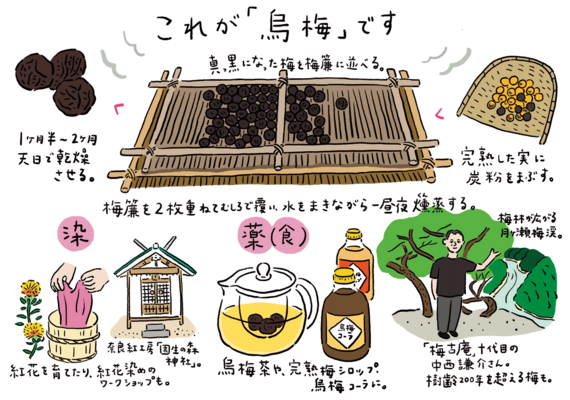 これが「烏梅」です
真っ黒になった梅を梅簾に並べる。
1ヶ月半～2ヶ月
天日で乾燥
させる。
完熟した実に
炭粉をまぶす。
梅簾を2枚重ねてむしろで覆い、水をまきながら一昼夜燻蒸する。
染
奈良紅工房「国生の森
神社」。
紅花を育てたり、紅花染めの
ワークショップも。
薬(食)
烏梅
コーラ
烏梅茶や、完熟梅シロップ、
烏梅コーラに。
梅林が広がる
月ヶ瀬梅渓。
「梅古庵」十代目の
中西謙介さん。
樹齢200年を超える梅も。